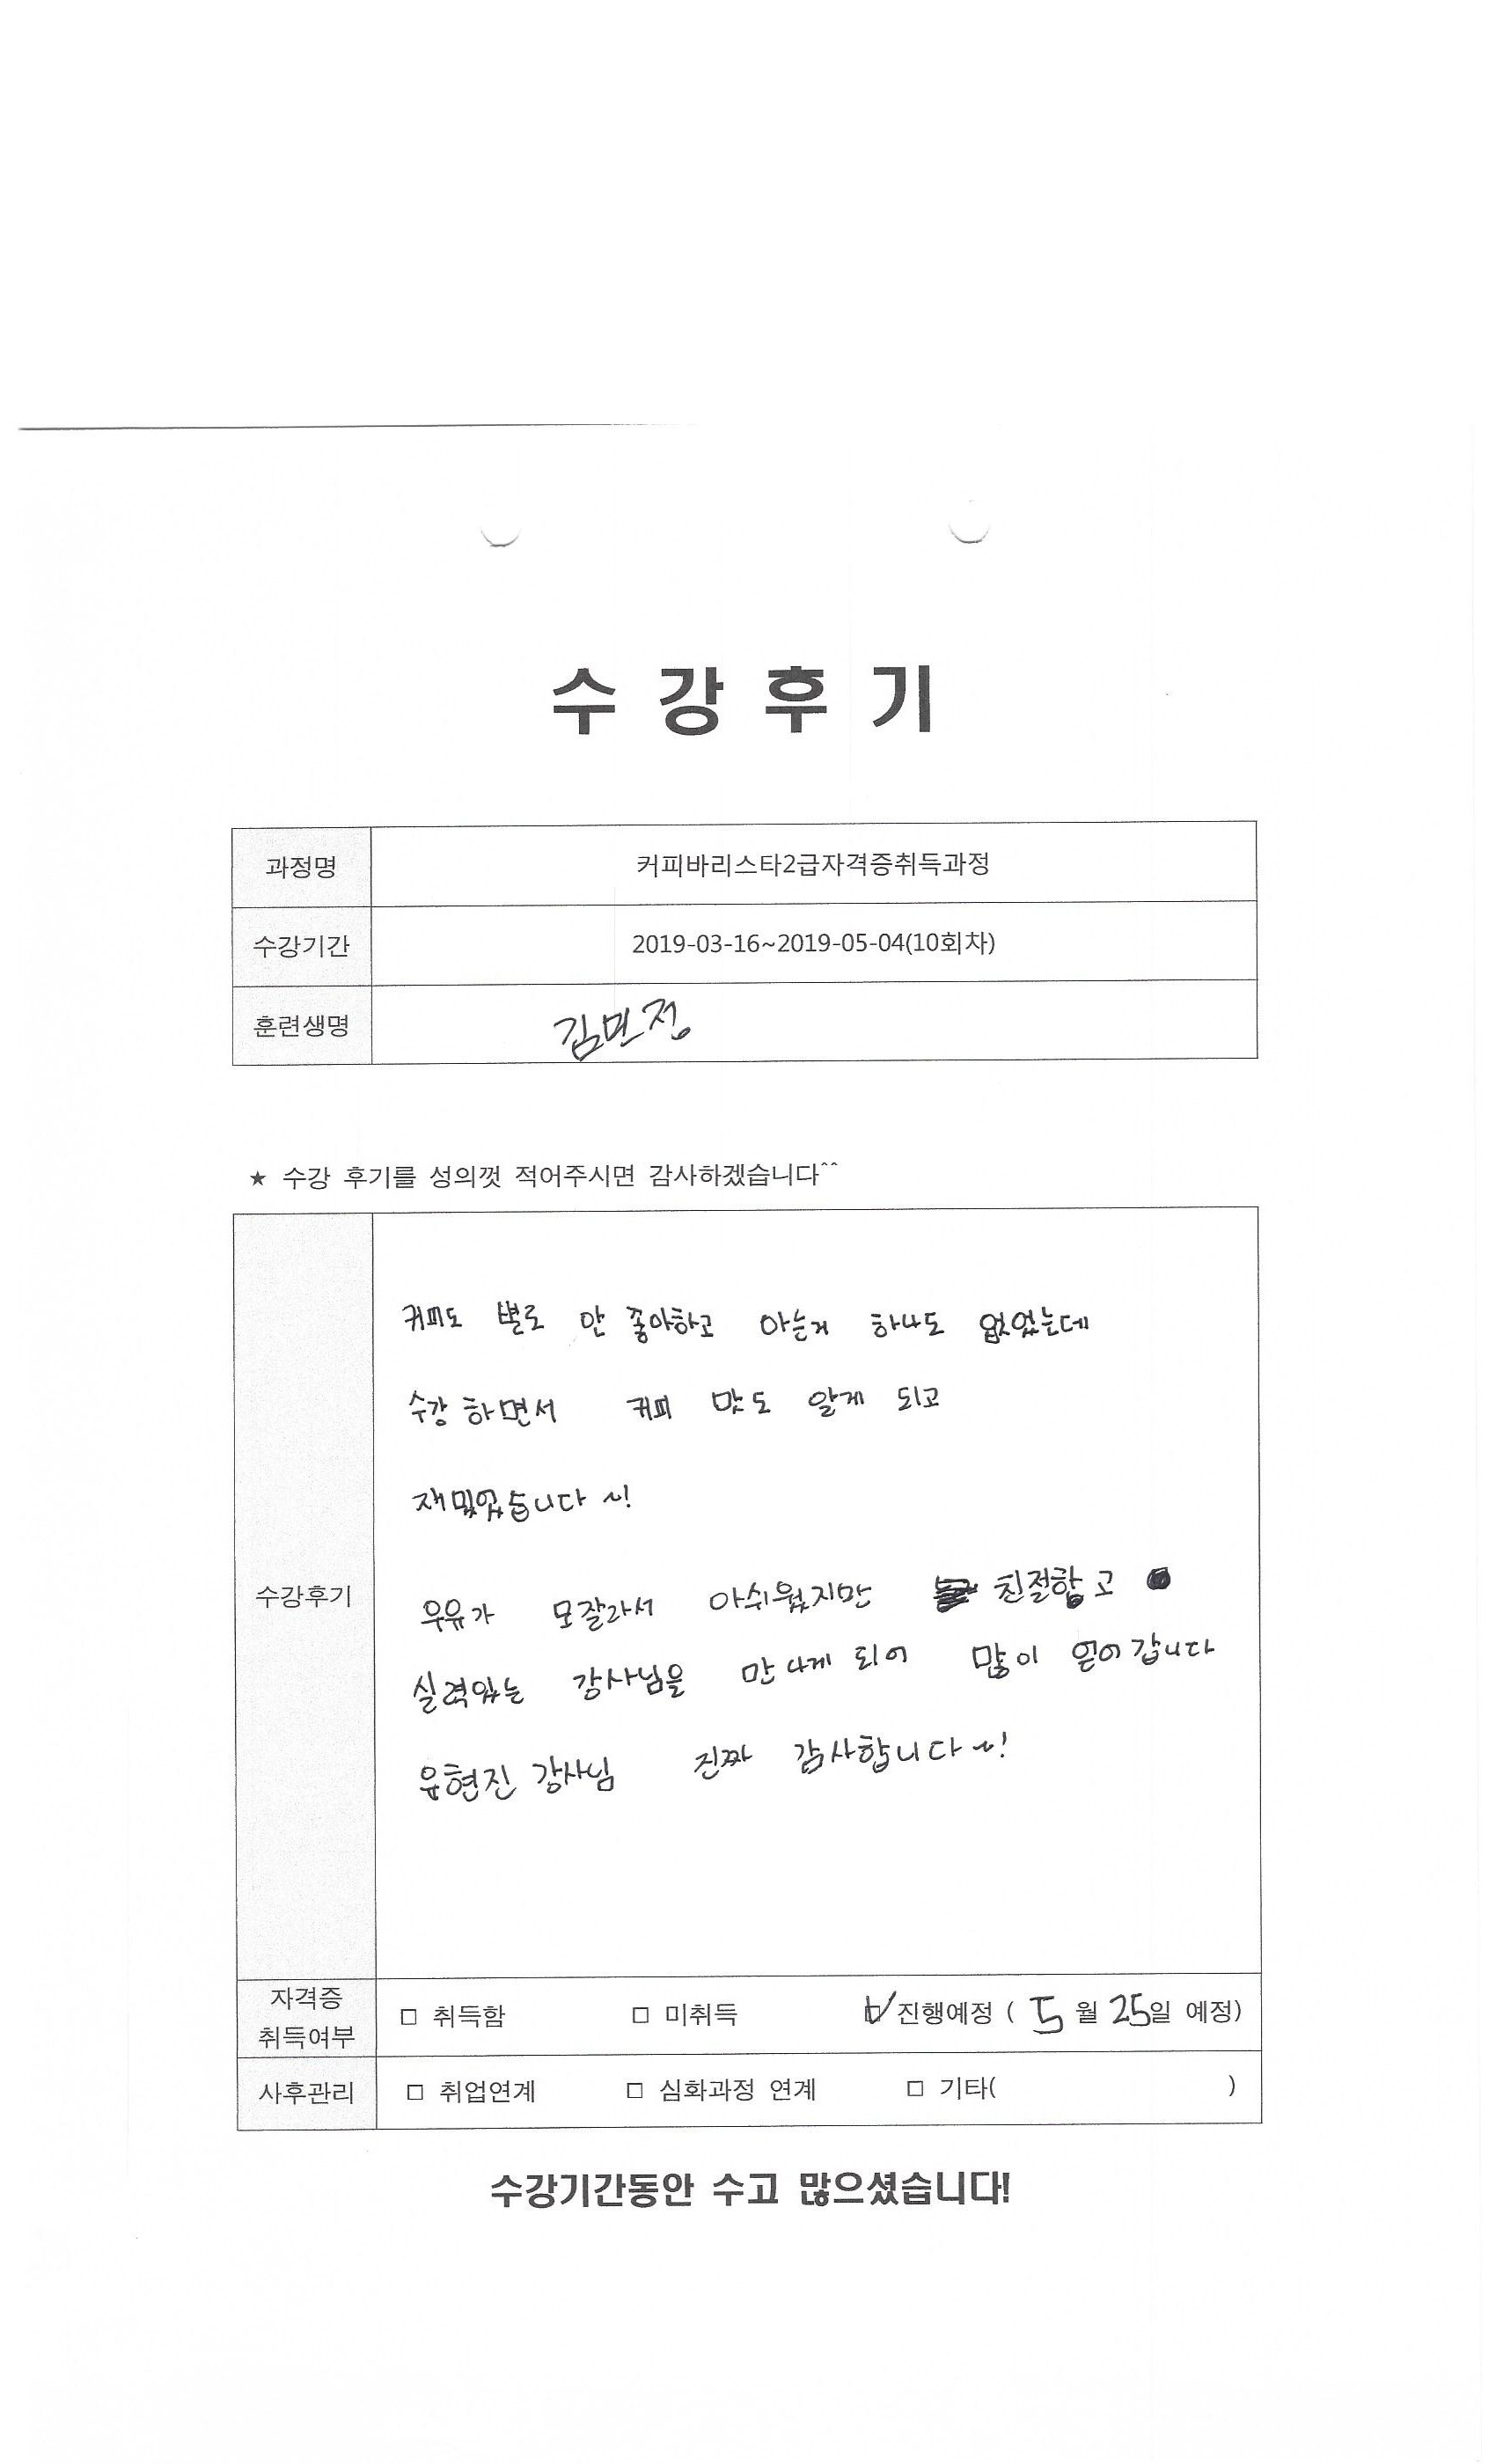 수강후기
과정명 커피바리스타2급자격증취득과정
수강기간 2019-03-16~2019-05-04(10회차)
훈련생명 김민정
★ 수강 후기를 성의껏 적어주시면 감사하겠습니다^^
수강후기
커피도 별로 안 좋아하고 아는거 하나도 없었는데
수강하면서 커피 맛도 알게 되고
재밌었습니다~!
우유가 모잘라서 아쉬웠지만 친절하고
실력있는 강사님을 만나게 되어 많이 얻어갑니다
유현진 강사님 진짜 감사합니다~!
자격증 취득여부 □ 취득함 □ 미취득 ☑ 진행예정 ( 5월 25일 예정)
사후관리 □ 취업연계 □ 심화과정 연계 □ 기타( )
수강기간동안 수고 많으셨습니다!